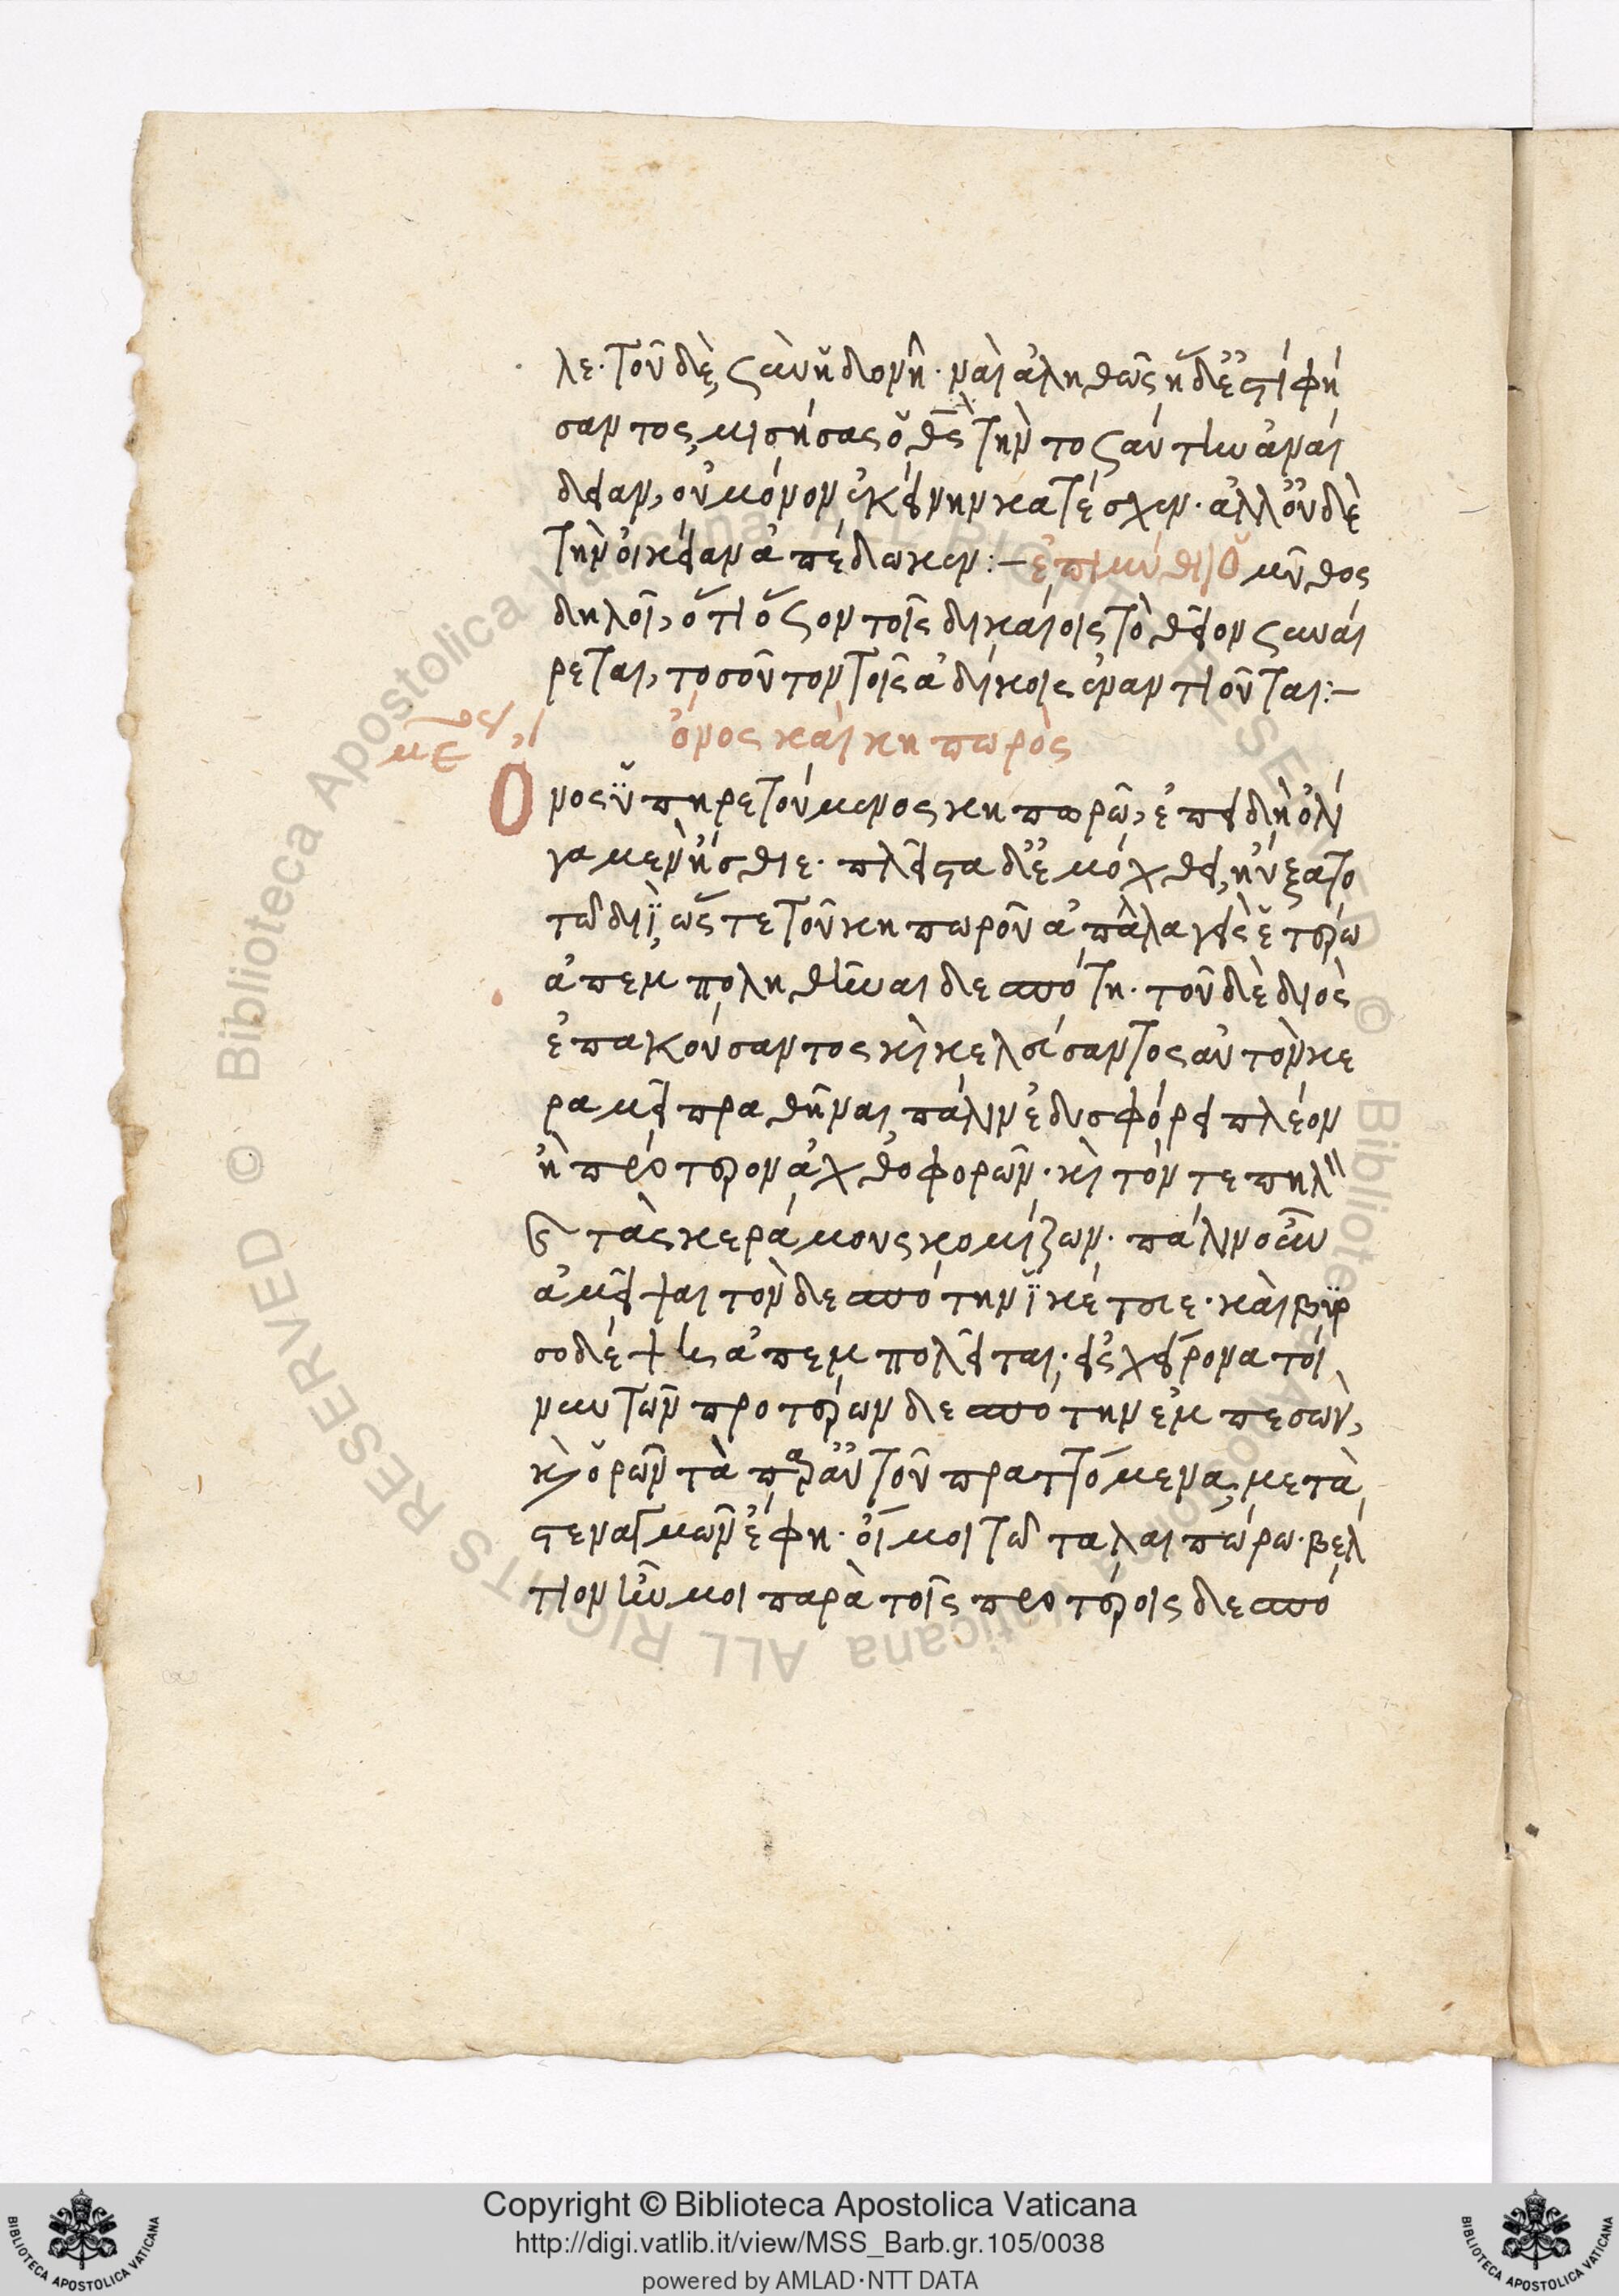 λε· τοῦ δὲ, σὺν ἡδονῇ· ναὶ ἀληθῶς ἥδ' ἐστὶ φή
σαντος, μισήσας ὁ θεὸς τὴν τοσαύτην ἀναί
δειαν, οὐ μόνον ἐκείνην κατέσχεν· ἀλλ' οὐδὲ
τὴν οἰκείαν ἀπέδωκεν :– ἐπιμύθιον Ὁ μῦθος
δηλοῖ, ὅτι ὅσον τοῖς δικαίοις τὸ θεῖον συναί
ρεται, τοσοῦτον τοῖς ἀδίκοις ἐναντιοῦται :–
ὄνος καὶ κηπωρὸς
Ὄνος ὑπηρετούμενος κηπωρῷ, ἐπειδὴ ὀλί
γα μὲν ἤσθιε· πλεῖστα δ' ἐμόχθει, ηὔξατο
τῷ διῒ, ὥστε τοῦ κηπωροῦ ἀπαλαγεὶς ἑτέρω
ἀπεμποληθῆναι δεσπότη· τοῦ δὲ διὸς
ἐπακούσαντος κὶ κελεύσαντος αὐτὸν κε
ραμεῖ πραθῆναι, πάλιν ἐδυσφόρει πλέον
ἢ πρότερον ἀχθοφορῶν· κὶ τόν τε πηλὸν
καὶ τὰς κεράμους κομίζων· πάλιν οὖν
ἀμεῖψαι τὸν δεσπότην ἱκέτευε· καὶ βυρ
σοδέψῃ ἀπεμπολεῖται· εἰς χείρονα τοί
νυν τῶν προτέρων δεσπότην ἐμπεσὼν,
κὶ ὁρῶν τὰ παρ' αὐτοῦ πραττόμενα, μετὰ
στεναγμῶν ἔφη· οἴμοι τῷ ταλαιπώρω· βέλ
τιον ἦν μοι παρὰ τοῖς προτέροις δεσπό
Copyright © Biblioteca Apostolica Vaticana
http://digi.vatlib.it/view/MSS_Barb.gr.105/0038
powered by AMLAD·NTT DATA